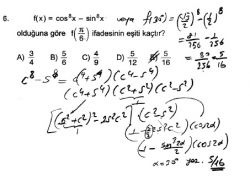 6. f(x) = cos⁸x - sin⁸x veya f(30°) = (√3/2)⁸ - (1/2)⁸
olduğuna göre f(π/6) ifadesinin eşiti kaçtır?
= 81/256 - 1/256
A) 3/4 B) 5/6 C) 4/9 D) 5/16 E)
= 80/256 = 5/16
c⁸ - s⁸ = (c⁴+s⁴)(c⁴-s⁴)
(c⁴+s⁴)(c²+s²)(c²-s²)
[(s²+c²)² - 2s²c²](c²-s²)
(1 - 2s²c²)(cos2x)
(1 - sin²2x/2)(cos2x)
x=30° 5/16